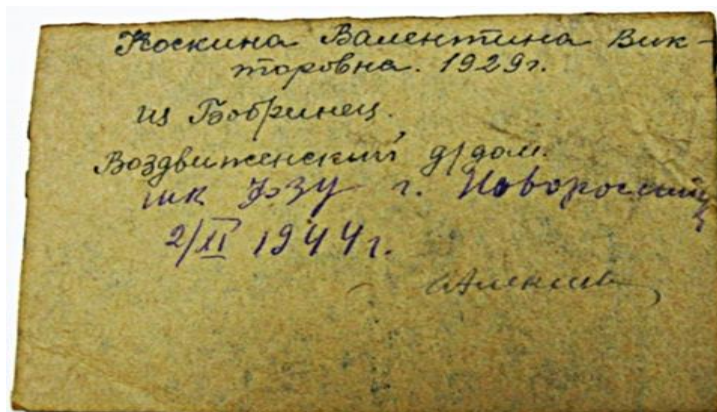 Коскина Валентина Вик-
торовна. 1929г.
из Бобринец.
Воздвиженский д/дом.
шк ФЗУ г. Новороссийск
2/XI 1944г.